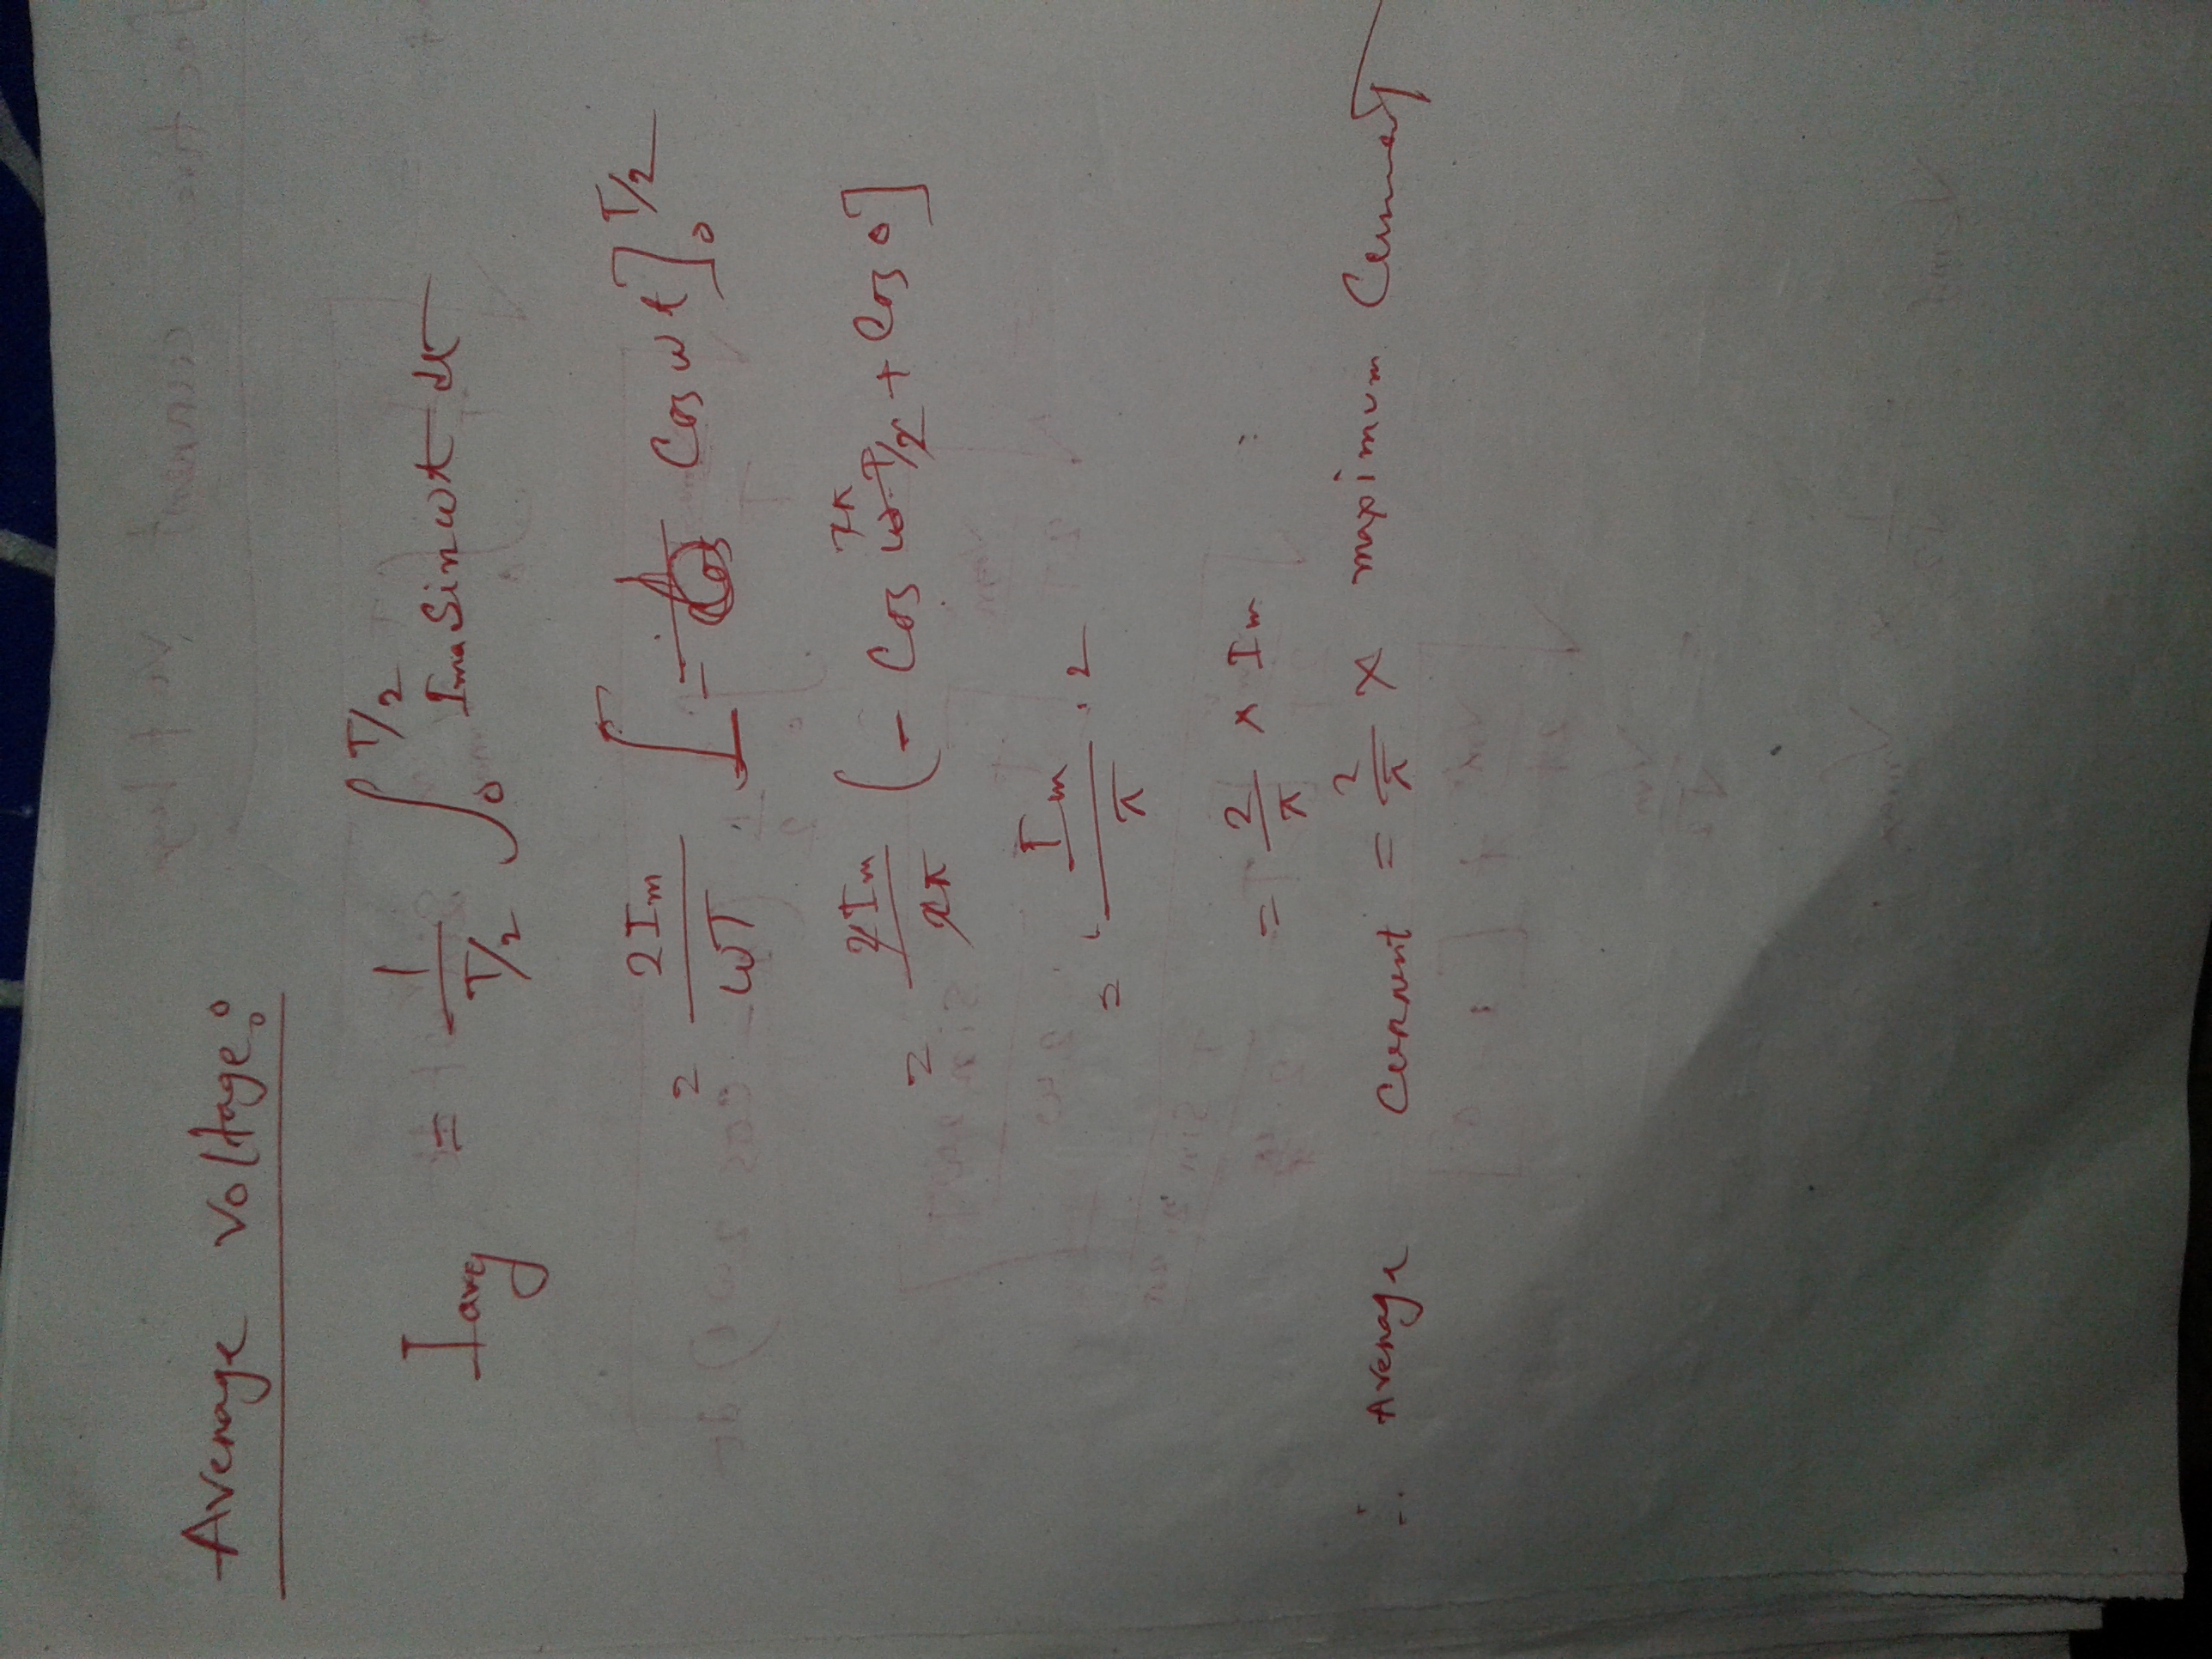 Average Voltage:
Iavg = 1/(T/2) ∫₀^T/2 Ima Sin ωt dt
= 2Im/ωT [- Cos ωt]₀^T/2
= 2Im/2π (- Cos 2π/2 + Cos 0]
= Im/π . 2
= 2/π × Im
∴ Average Current = 2/π × maximum Current